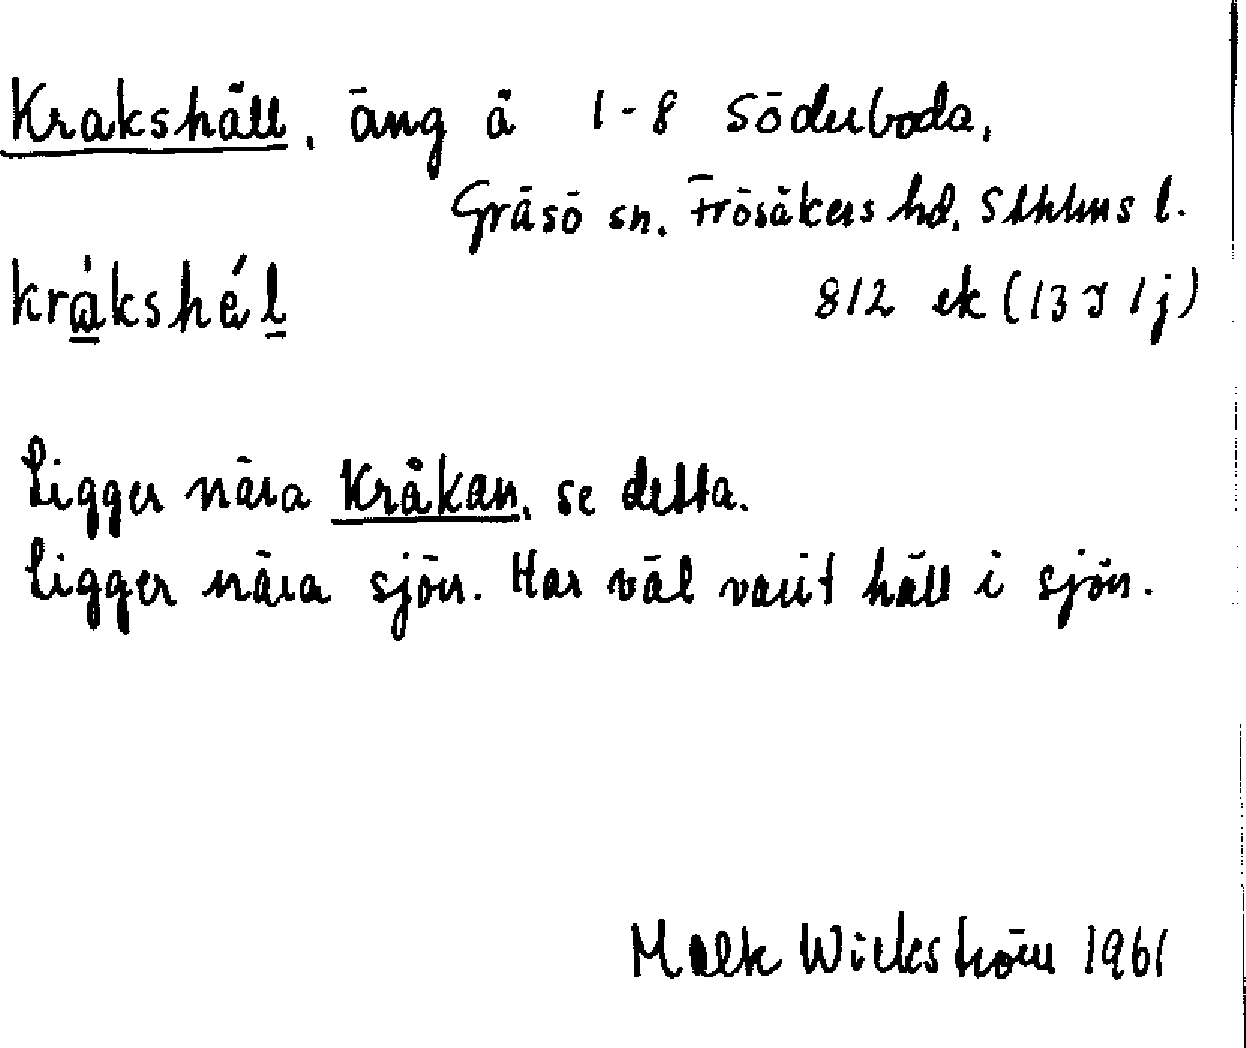 Krakshäll, äng å 1-8 Söderboda,
Gräsö sn. Frösåkers hd. Sthlms l.
kràkshél 812 ek (13 I 1j)
Ligger nära Kråkan, se detta.
Ligger nära sjön. Har väl varit häll i sjön.
Maek Wickström 1961